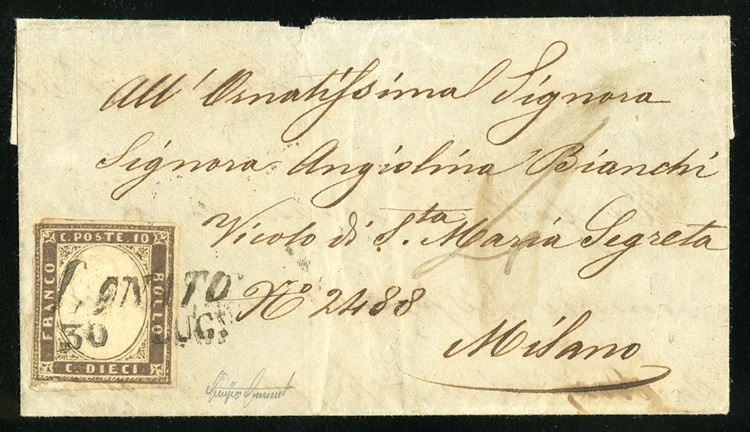 All' Ornatissima Signora
Signora Angiolina Bianchi
Vicolo di S.ta Maria Segreta
N° 2488
Milano
C. POSTE. 10
FRANCO
BOLLO
C. DIECI
LONATO
30 LUG.